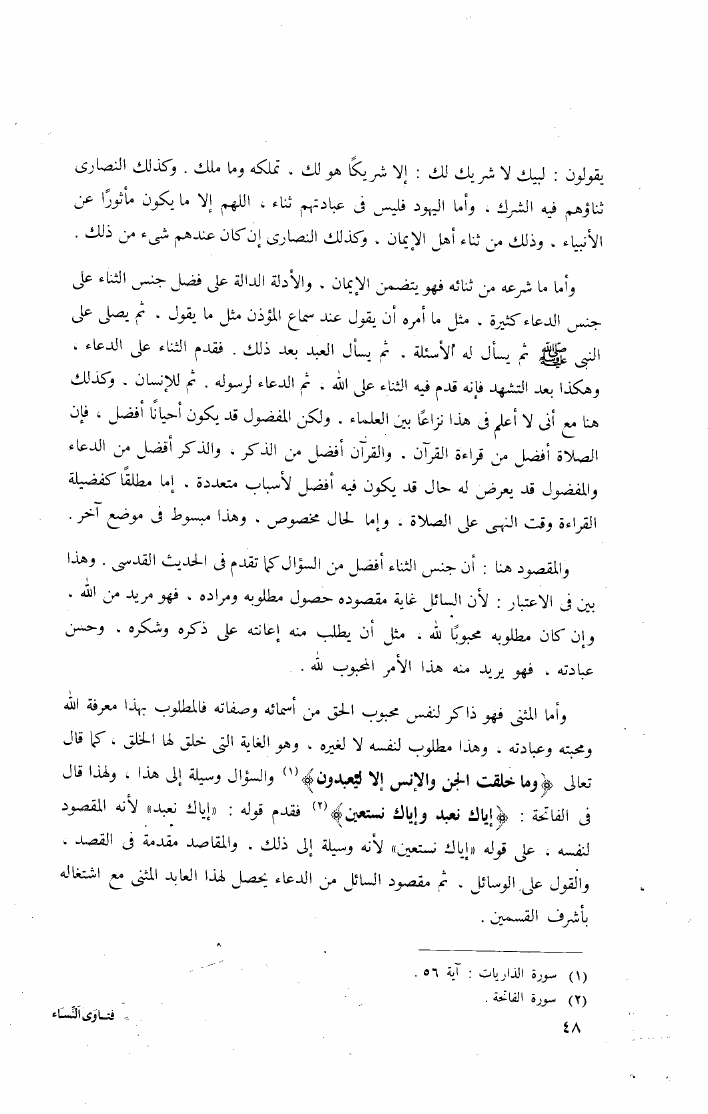 يقولون : لبيك لا شريك لك : إلا شريكًا هو لك . تملكه وما ملك . وكذلك النصارى
ثناؤهم فيه الشرك . وأما اليهود فليس فى عبادتهم ثناء ، اللهم إلا ما يكون مأثورًا عن
الأنبياء . وذلك من ثناء أهل الإيمان . وكذلك النصارى إن كان عندهم شىء من ذلك .
وأما ما شرعه من ثنائه فهو يتضمن الإيمان . والأدلة الدالة على فضل جنس الثناء على
جنس الدعاء كثيرة . مثل ما أمره أن يقول عند سماع المؤذن مثل ما يقول . ثم يصلى على
النبى ﷺ ثم يسأل له الأسئلة . ثم يسأل العبد بعد ذلك . فقدم الثناء على الدعاء ،
وهكذا بعد التشهد فإنه قدم فيه الثناء على الله . ثم الدعاء لرسوله . ثم للإنسان . وكذلك
هنا مع أنى لا أعلم فى هذا نزاعًا بين العلماء . ولكن المفضول قد يكون أحيانًا أفضل ، فإن
الصلاة أفضل من قراءة القرآن . والقرآن أفضل من الذكر . والذكر أفضل من الدعاء
والمفضول قد يعرض له حال قد يكون فيه أفضل لأسباب متعددة . إما مطلقًا كفضيلة
القراءة وقت النهى على الصلاة . وإما لحال مخصوص . وهذا مبسوط فى موضع آخر .
والمقصود هنا : أن جنس الثناء أفضل من السؤال كما تقدم فى الحديث القدسى . وهذا
بين فى الاعتبار : لأن السائل غاية مقصوده حصول مطلوبه ومراده . فهو مريد من الله .
وإن كان مطلوبه محبوبًا لله ، مثل أن يطلب منه إعانته على ذكره وشكره . وحسن
عبادته . فهو يريد منه هذا الأمر المحبوب لله .
وأما المثنى فهو ذاكر لنفس محبوب الحق من أسمائه وصفاته فالمطلوب بهذا معرفة الله
ومحبته وعبادته . وهذا مطلوب لنفسه لا لغيره ، وهو الغاية التى خلق لها الخلق ، كما قال
تعالى ﴿وما خلقت الجن والإنس إلا ليعبدون﴾(١) والسؤال وسيلة إلى هذا ، ولهذا قال
فى الفاتحة : ﴿إياك نعبد وإياك نستعين﴾(٢) فقدم قوله : «إياك نعبد» لأنه المقصود
لنفسه . على قوله «إياك نستعين» لأنه وسيلة إلى ذلك . والمقاصد مقدمة فى القصد ،
والقول على الوسائل . ثم مقصود السائل من الدعاء يحصل لهذا العابد المثنى مع اشتغاله
بأشرف القسمين .
(١) سورة الذاريات : آية ٥٦ .
(٢) سورة الفاتحة .
فتاوى النساء
٤٨